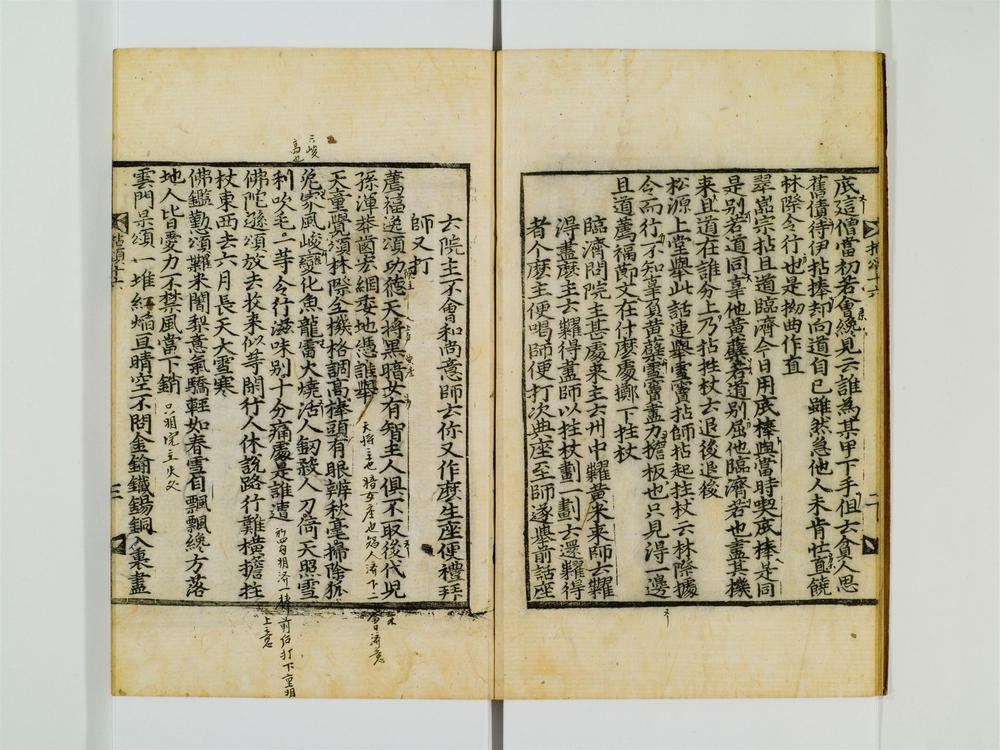 底這僧當初若會纔見云誰爲某甲下手但去貪人思
舊債待伊拈捧却向道自已雖然急他人未肯忙直饒
林際令行也是拗曲作直
翠嵓宗拈且道臨濟今日用底棒與當時喫底捧是同
是別若道同辜他黃蘗若道別屈他臨濟若也盡其機
來且道在誰分上乃拈拄杖云退後退後
松源上堂擧此話連擧雪竇拈師拈起拄杖云林際據
令而行不知辜負黃蘗雪竇盡力擔板也只見得一邊
且道薦福節文在什麽處擲下拄杖
臨濟問院主甚處來主云州中糶黃米來師云糶
得盡麽主云糶得盡師以拄杖劃一劃云還糶得
者个麽主便喝師便打次典座至師遂擧前話座
云院主不會和尚意師云你又作麽生座便禮拜
師又打
薦福逸頌功德天將黑暗女有智主人俱不取後代兒
孫渾莽鹵宏綱委地憑誰擧
天童覺頌林際全機格調高棒頭有眼辨秋毫掃除狐
兔家風峻變化魚龍雷火燒活人釰殺人刀倚天照雪
利吹毛一等令行滋味別十分痛處是誰遭
佛陀遜頌放去收來似等閑行人休說路行難橫擔拄
杖東西去六月長天大雪寒
佛鑑勤頌糶米闍梨意氣驕輕如春雪自飄飄纔方落
地人皆愛力不禁風當下銷
雲門杲頌一堆紅焰亘晴空不問金鍮鐵錫銅入裏盡